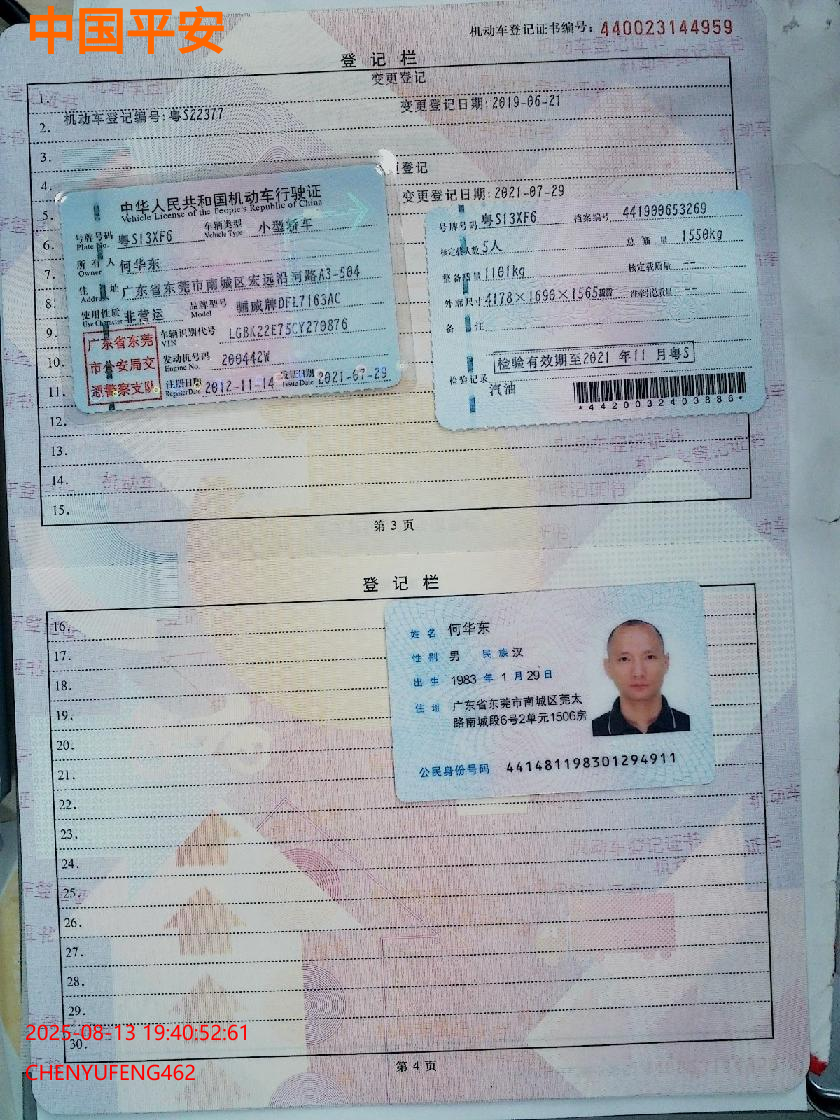 中国平安
机动车登记证书编号：440023144959
登 记 栏
变更登记
1.
变更登记日期:2019-06-21
2. 机动车登记编号:粤S22377
3.
登记
4.
变更登记日期:2021-07-29
中华人民共和国机动车行驶证
Vehicle License of the People's Republic of China
号牌号码 粤S13XF6 车辆类型 小型轿车
Plate No. Vehicle Type
所有人 何华东
Owner
住址 广东省东莞市南城区宏远沿河路A3-504
Address
使用性质 非营运 品牌型号 骊威牌DFL7163AC
Use Character Model
广东省东莞
市公安局交
通警察支队
车辆识别代号 LGBK22E75CY270876
VIN
发动机号码 200442W
Engine No.
注册日期 2012-11-14 发证日期 2021-07-29
Register Date Issue Date
号牌号码 粤S13XF6 档案编号 441900653269
核定载人数 5人 总质量 1550kg
整备质量 1161kg 核定载质量 --
外廓尺寸 4178×1690×1565 准牵引总质量 --
备注
检验有效期至2021 年11 月粤S
检验记录
汽油
*4420032403886*
5.
6.
7.
8.
9.
10.
11.
12.
13.
14.
15.
第 3 页
登 记 栏
16.
17.
18.
19.
20.
21.
22.
23.
24.
25.
26.
27.
28.
29.
30.
姓名 何华东
性别 男 民族 汉
出生 1983 年 1 月 29 日
住址 广东省东莞市南城区莞太
路南城段6号2单元1506房
公民身份号码 441481198301294911
第 4 页
2025-08-13 19:40:52:61
CHENYUFENG462